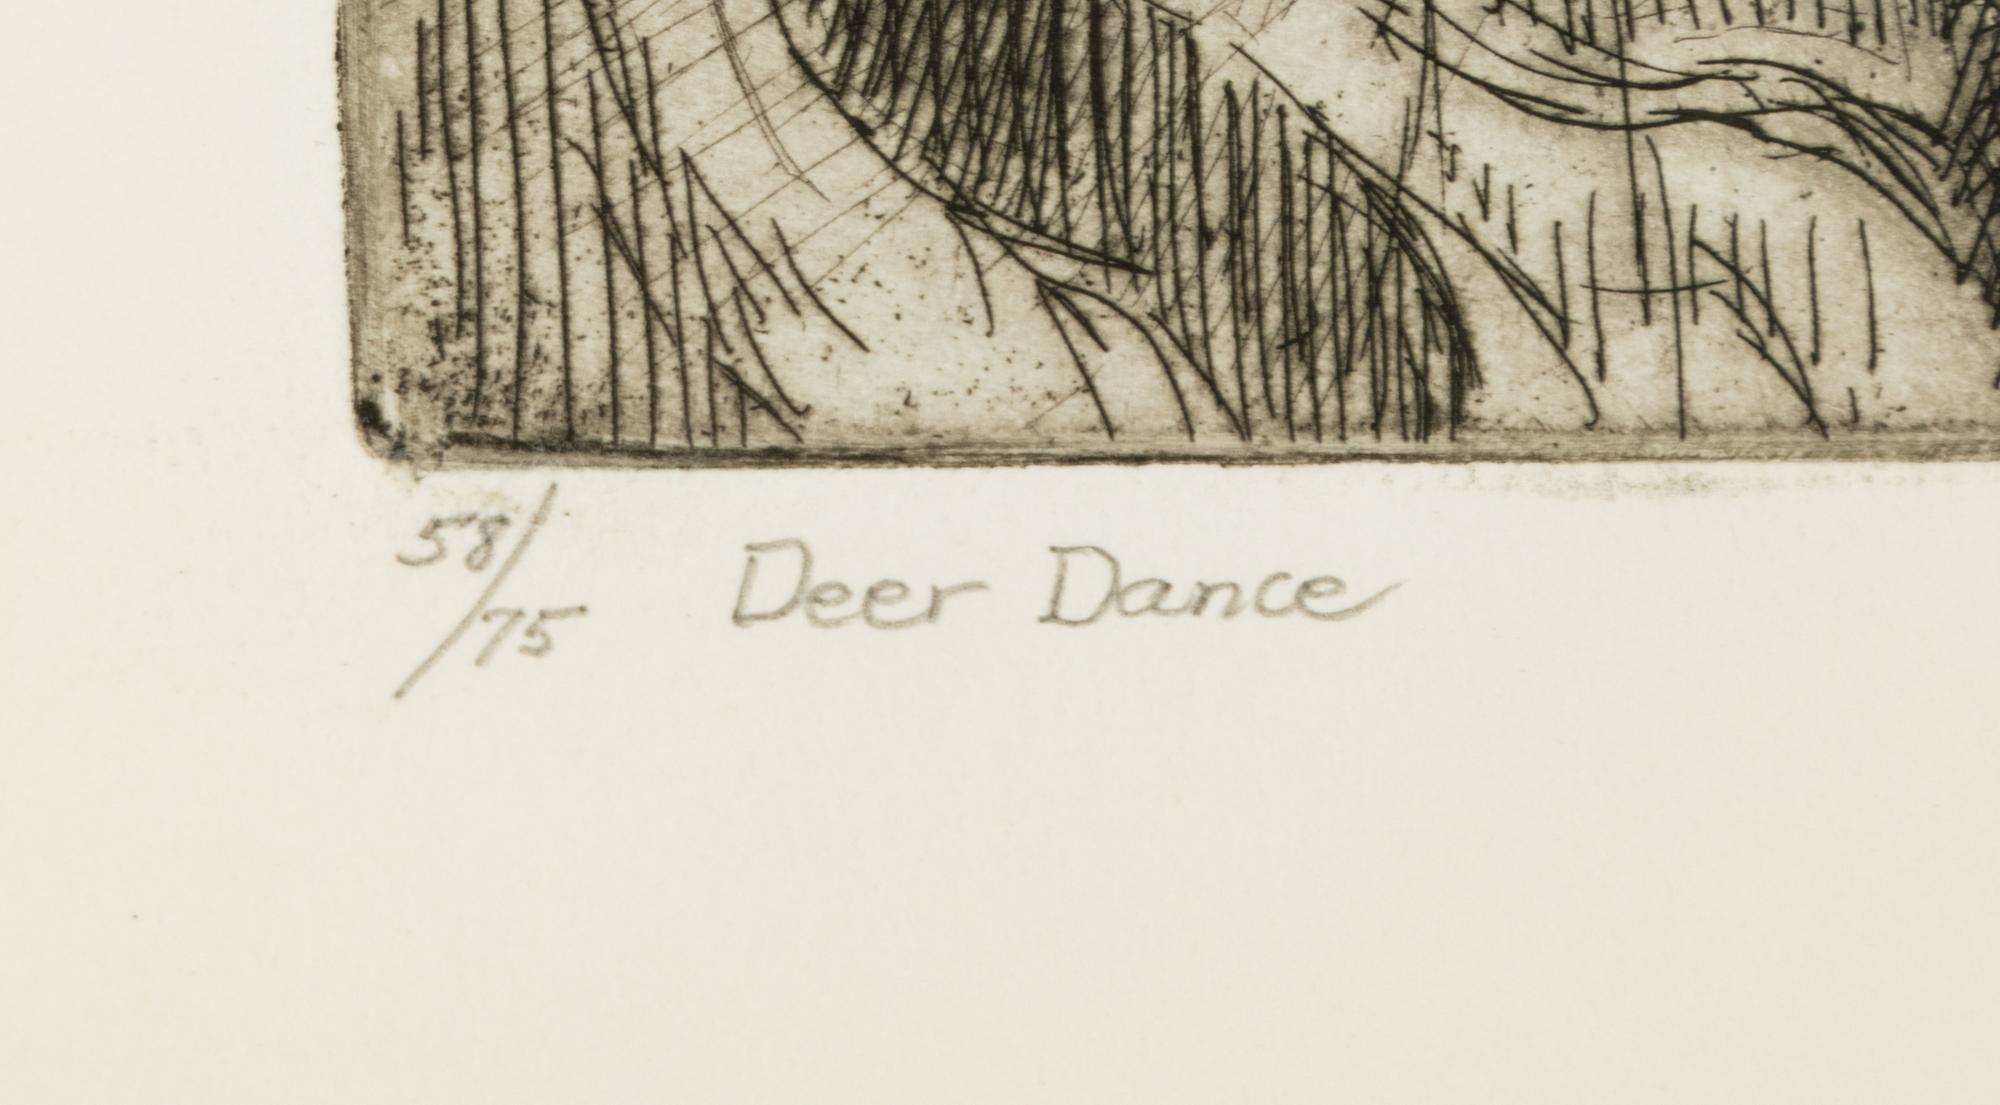 58/75 Deer Dance